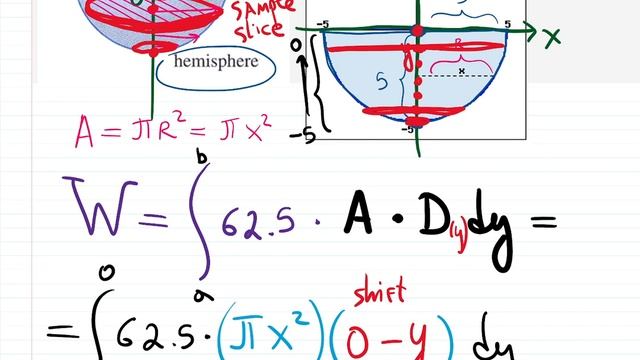 SAMPLE
SLICE
hemisphere
-5 5 x
R
0 y x
5
-5 -5
A = πR² = πx²
W = ∫ₐᵇ 62.5 · A · D(y) dy =
shift
= ∫ 0 62.5 · (πx²)(0 - y) dy